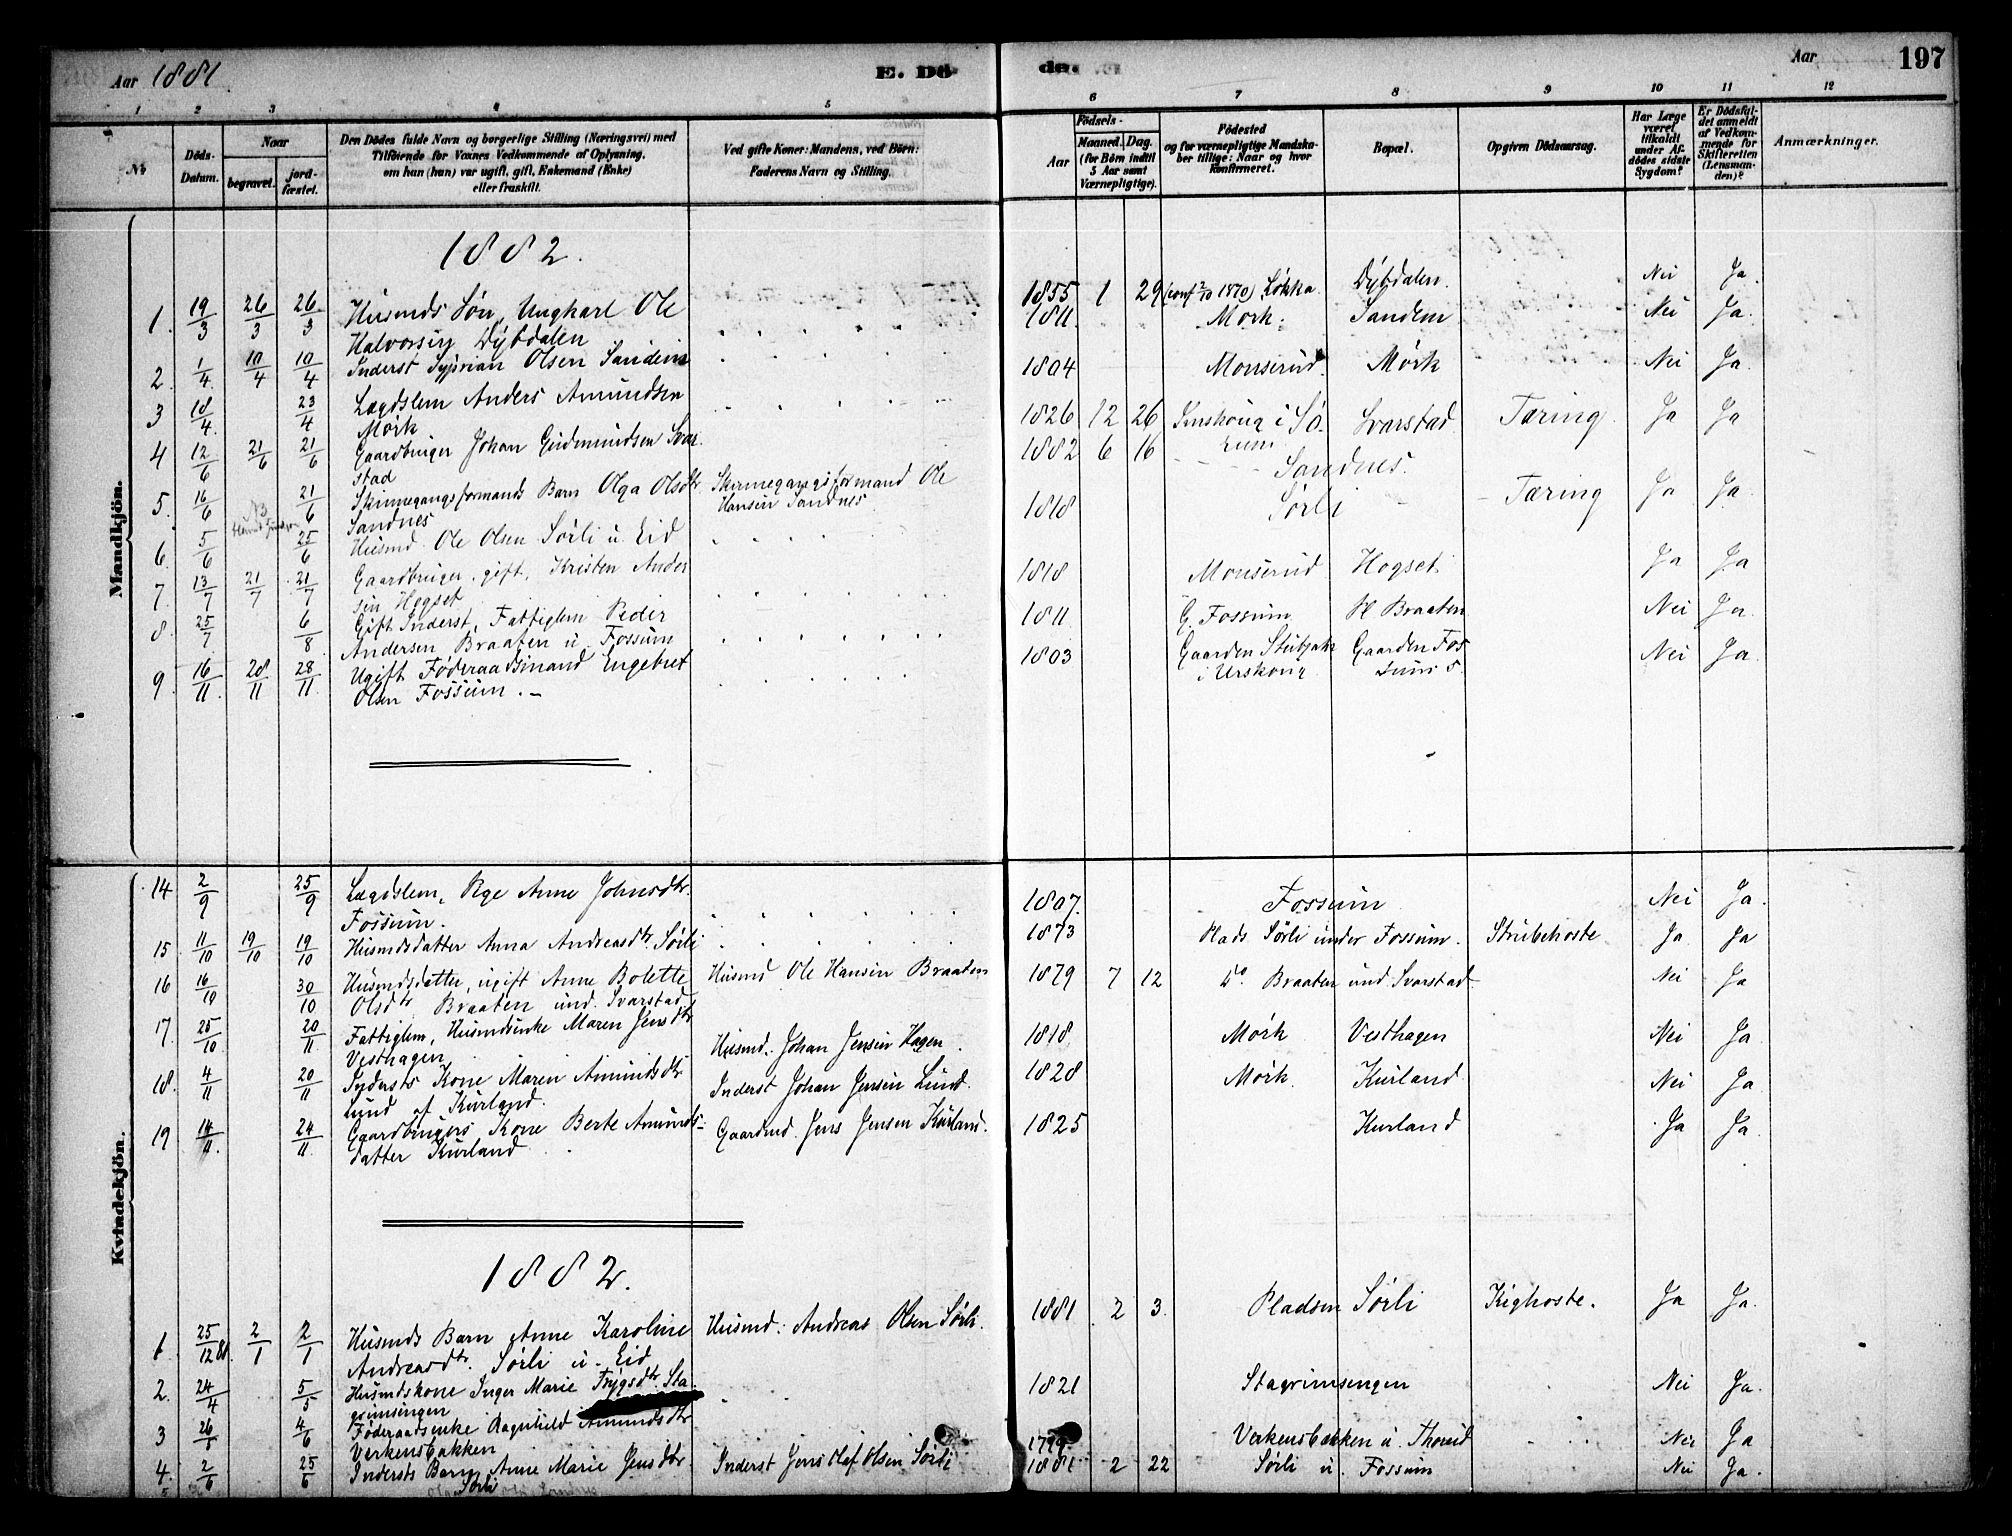 Aar 1881.
E. Dö-
de.
Aar
197
1 2 3 4 5 6 7 8 9 10 11 12
No
Döds-
Datum.
Naar
begravet.
jord-
fæstet.
Den Dödes fulde Navn og borgerlige Stilling (Næringsvei) med
Tilföiende for Voxnes Vedkommende af Oplysning,
om han (hun) var ugift, gift, Enkemand (Enke)
eller fraskilt.
Ved gifte Koner: Mandens, ved Börn:
Faderens Navn og Stilling.
Födsels-
Aar
Maaned. Dag.
(for Börn indtil
5 Aar samt
Værnepligtige).
Födested
og for værnepligtige Mandska-
ber tillige: Naar og hvor
konfirmeret.
Bopæl.
Opgiven Dödsaarsag.
Har Læge
været
tilkaldt
under Af-
dödes sidste
Sygdom?
Er Dödsfal-
det anmeldt
af Vedkom-
mende for
Skifteretten
(Lensman-
den)?
Anmærkninger.
Mandkjön.
1882.
1. 19/3 26/3 26/3 Husmds Søn, Ungkarl Ole 1855 1 29 (conf 2/10 1870) Løkka Dybdalen. Nei Ja.
Halvorsen Dybdalen
2. 1/4 10/4 10/4 Inderst Syprian Olsen Sandem 1811. Mork. Sandem Nei Ja.
3 18/4 23/4 Lægdslem Anders Amundsen 1804 Monserud. Mørk Nei Ja.
Mørk
4 12/6 21/6 21/6 Gaardbruger Johan Gudmundsen Svar- 1826 12 26 i Sø- Svarstad Tæring Ja Ja
stad
5. 16/6 21/6 Skinnegangsformands Barn Olga Olsdtr Skinnegangsformand Ole 1882 6 16 Sandnes.
Sandnes Hansen Sandnes
6. 5/6 25/6 Husmd. Ole Olsen Sørli u. Eid 1818 Sørli Tæring Ja Ja.
7. 13/7 21/7 21/7 Gaardbruger, gift, Kristen Ander 1818 Monserud Hogset Ja Ja
sen Hogset
8. 25/7 6/8 Gift Inderst, Fattiglem Peder 1811 G. Fossum Pl Braaten Nei Ja
Andersen Braaten u. Fossum
9. 16/11 28/11 28/11 Ugift Føderaadsmand Engebret 1803 Gaarden Gaarden Fos Nei Ja.
Olsen Fossum. i Urskoug sum
Kvindekjön.
14 2/9 25/9 Lægdslem, Pige Anne Johnsdtr. 1807. Fossum Nei Ja.
Fossum.
15 11/10 19/10 19/10 Husmdsdatter Anna Andreasdtr. Sørli 1873 Plads Sørli under Fossum. Strubehoste Ja Ja
16 16/10 30/10 Husmdsdatter, ugift Anne Bolette Husmd Ole Hansen Braaten 1879 7 12 Do. Braaten und Svarstad Nei Ja
Olsdtr Braaten und. Svarstad
17. 25/10 20/11 Fattiglem, Husmdsenke Maren Jensdtr Husmd. Johan Jensen Hagen. 1818. Mørk Vesthagen Nei Ja
Vesthagen
18. 4/11 20/11 Indersts Kone Maren Amundsdtr Inderst Johan Jensen Lund 1828 Mørk. Kurland Nei Ja.
Lund af Kurland.
19 14/11 24/11 Gaardbrugers Kone Berte Amunds- Gaardmd. Jens Jensen Kurland. 1825 Kurland Ja Ja.
datter Kurland
1882.
1. 25/12 81. 2/1 2/1 Husmds Barn Anne Karoline Husmd. Andreas Olsen Sørli. 1881 2 3 Pladsen Sørli Kighoste. Ja Ja.
Andreasdtr. Sørli u. Eid
2. 24/4 5/5 Husmdskone Inger Marie Trygsdtr. Sta- 1821 Stagrimsengen Nei Ja.
grimsengen
3 26/5 4/6 Føderaadsenke Ragnhild Amundsdtr 1799 Verkensbakken u. Thorud Nei Ja
Verkensbakken
4. 2/6 25/6 Indersts Barn Anne Marie Jensdtr Inderst Jens Olaf Olsen Sørli 1881 2 22 Sørli u. Fossum Nei Ja.
Sørli